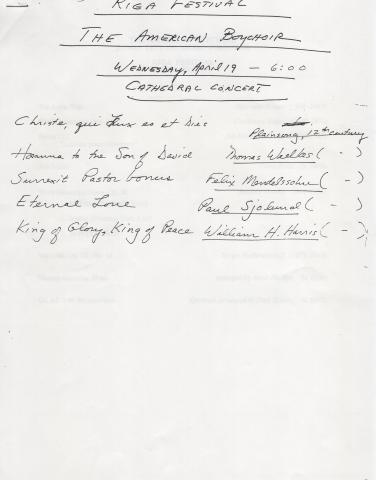 RIGA FESTIVAL
THE AMERICAN BOYCHOIR
WEDNESDAY, April 19 - 6:00
CATHEDRAL CONCERT
Christe, qui lux es et dies Plainsong, 12th century
Hosanna to the Son of David Thomas Weelkes ( - )
Surrexit Pastor bonus Felix Mendelssohn ( - )
Eternal Love Paul Sjolund ( - )
King of Glory, King of Peace William H. Harris ( - )